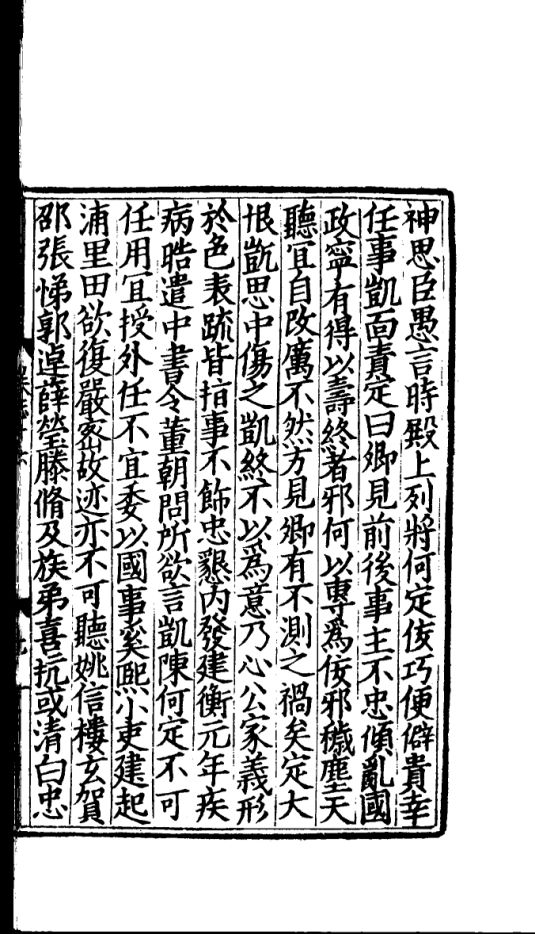 神思臣愚言時殿上列將何定佞巧便僻貴幸
任事凱面責定曰卿見前後事主不忠傾亂國
政寧有得以壽終者邪何以專爲佞邪穢塵天
聽宜自改厲不然方見卿有不測之禍矣定大
恨凱思中傷之凱終不以爲意乃心公家義形
於色表疏皆指事不飾忠懇內發建衡元年疾
病晧遣中書令董朝問所欲言凱陳何定不可
任用宜授外任不宜委以國事奚熙小吏建起
浦里田欲復嚴密故迹亦不可聽姚信樓玄賀
邵張悌郭逴薛瑩滕脩及族弟喜抗或清白忠